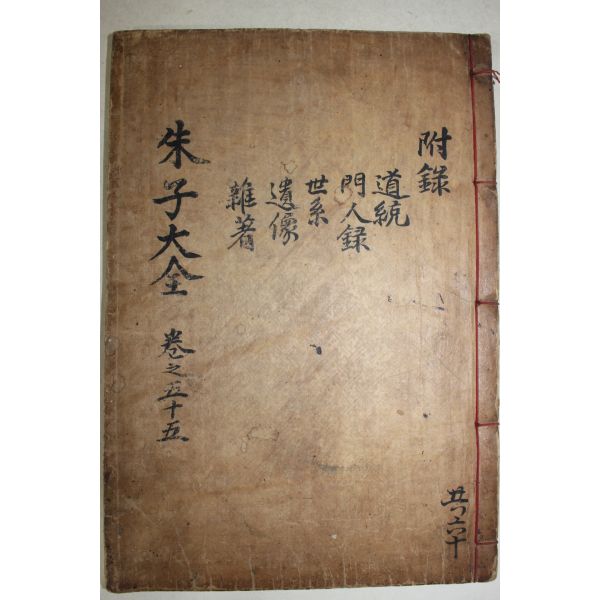 附録
道統
門人録
世系
遺像
雜著
朱子大全 卷之五十五
共六十